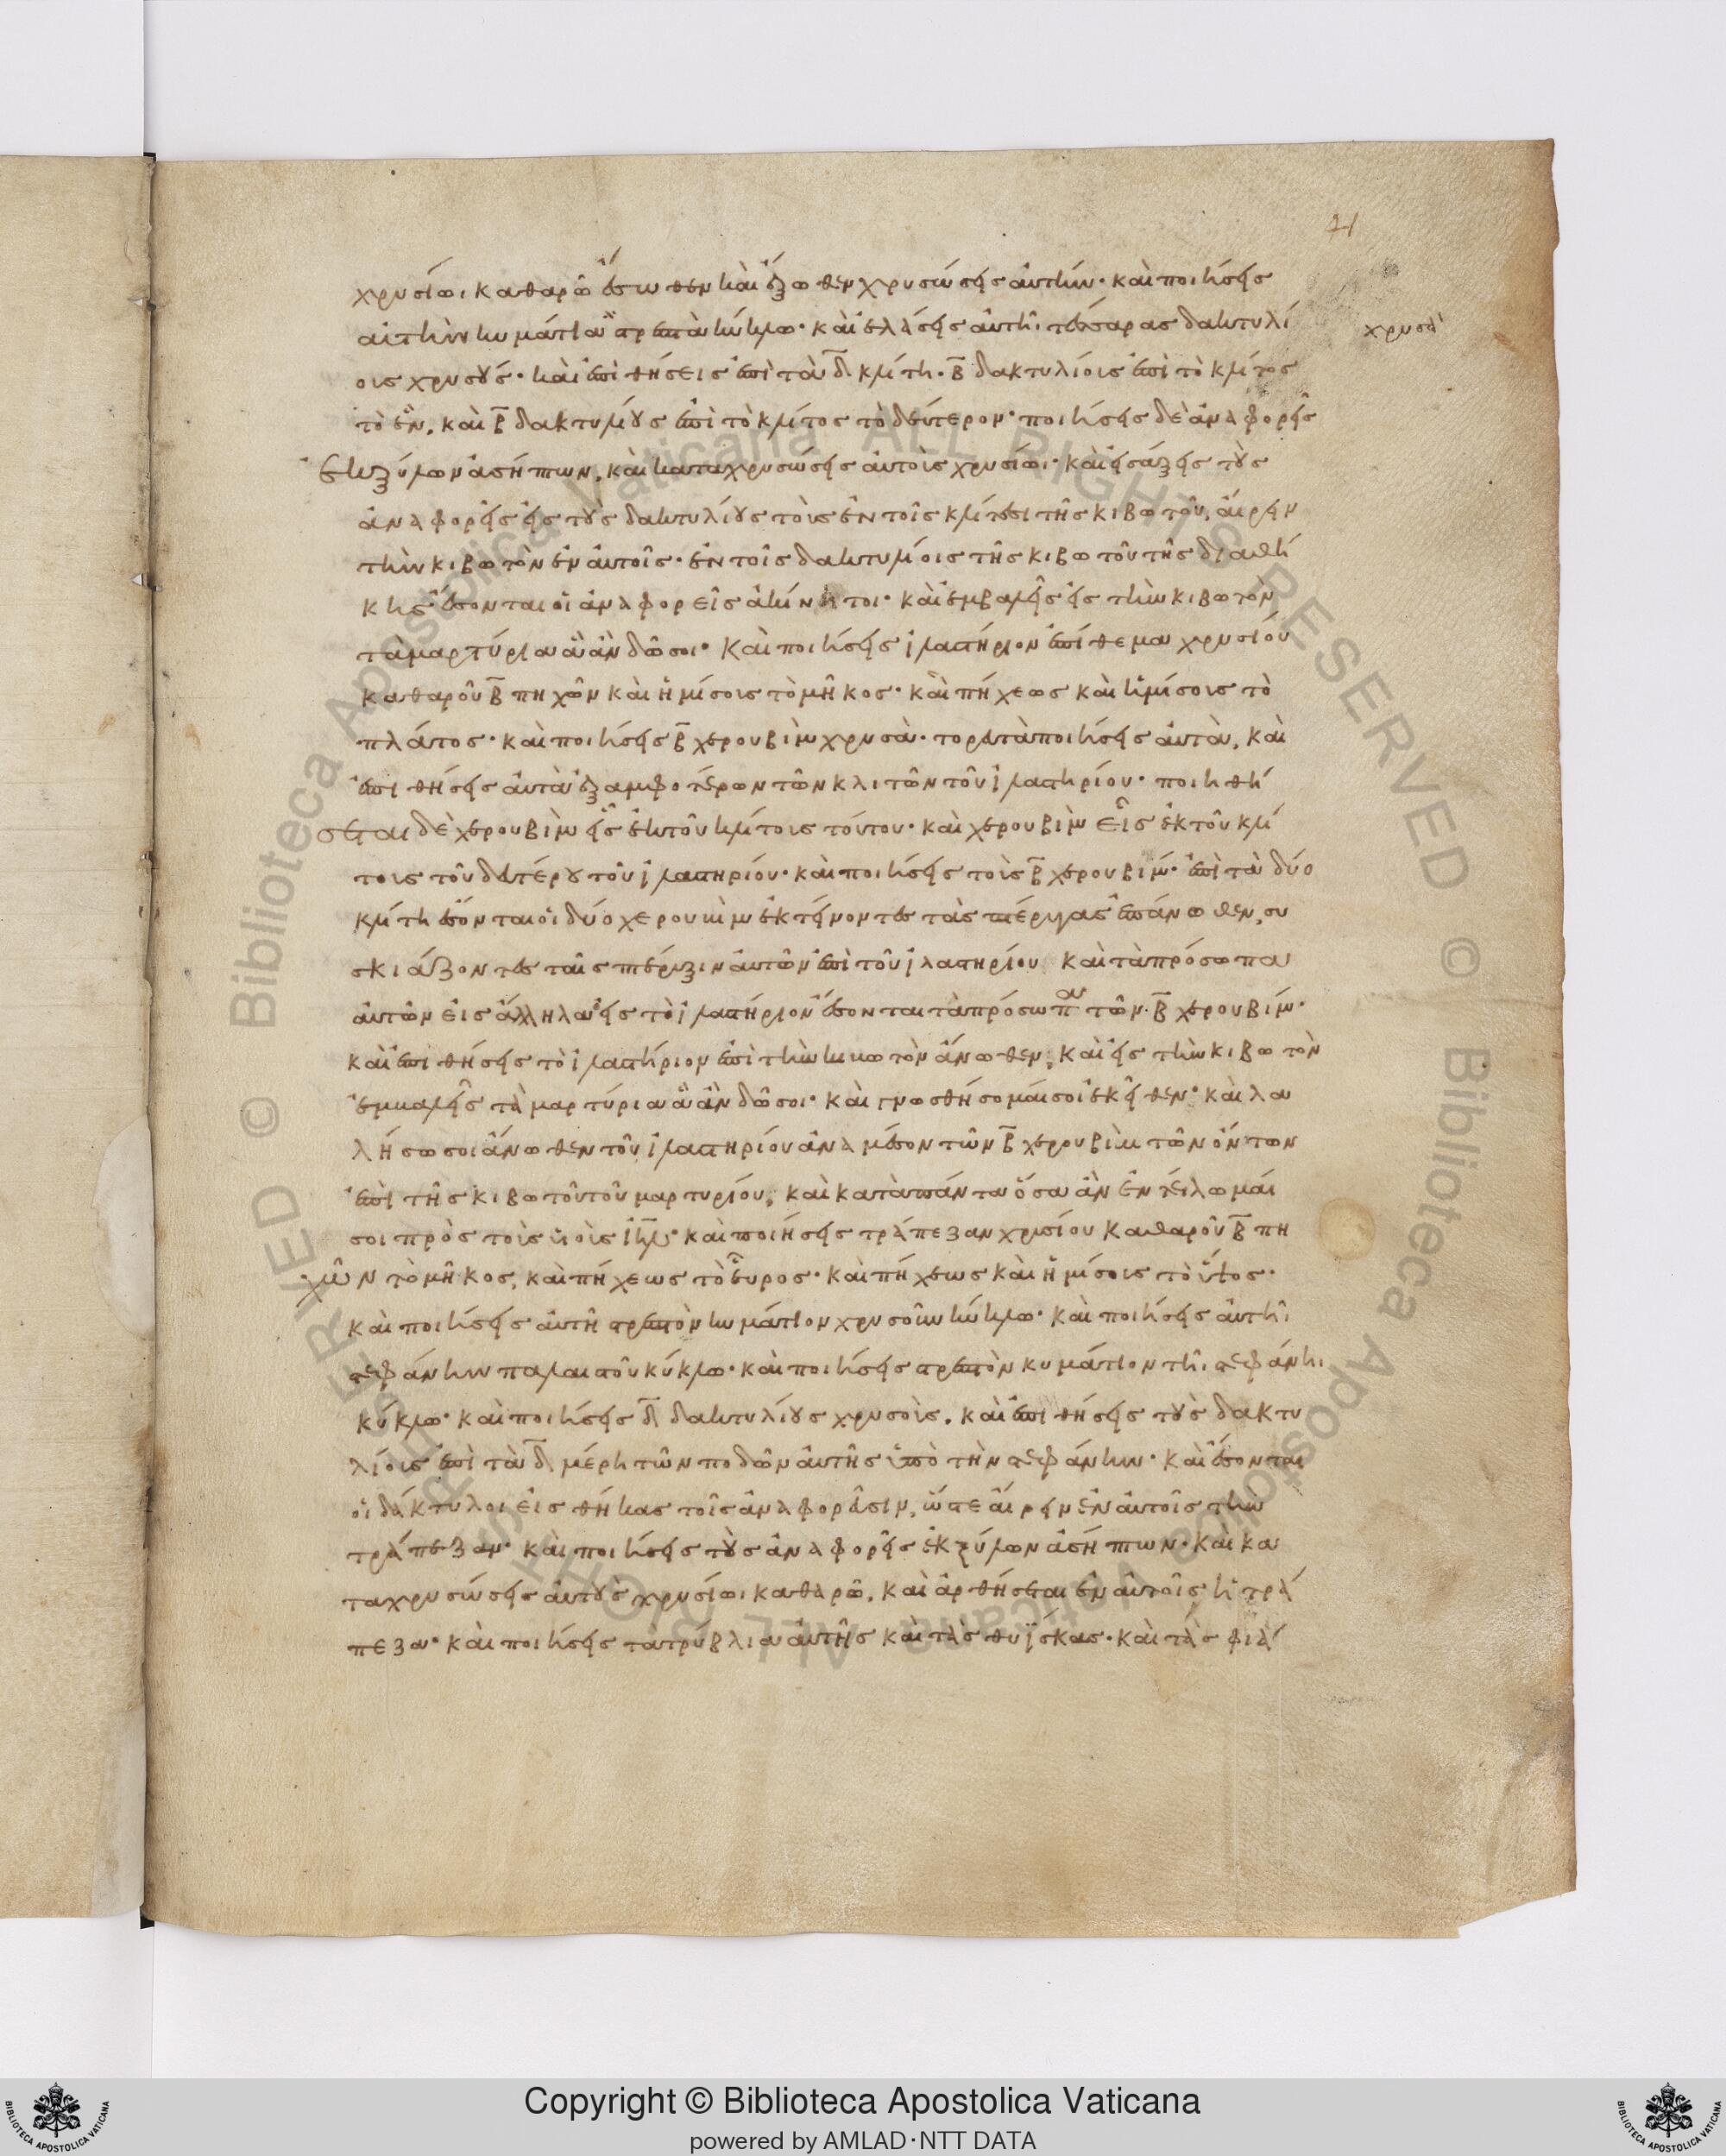 71
χρυσίωι καθαρῶ ἔσωθεν καὶ ἔξωθεν χρυσώσεις αὐτήν· καὶ ποιήσεις
αὐτῆι κυμάτια στρεπτὰ κύκλω· καὶ ἐλάσεις αὐτῆι τέσσαρας δακτυλί
χρυσᾶ
ους χρυσοῦς· καὶ ἐπιθήσεις ἐπὶ τὰ δ̅ κλίτη· β̅ δακτυλίους ἐπὶ τὸ κλίτος
τὸ ἕν, καὶ β̅ δακτυλίους ἐπὶ τὸ κλίτος τὸ δεύτερον· ποιήσεις δὲ ἀναφορεῖς
ἐκ ξύλων ἀσήπτων, καὶ καταχρυσώσεις αὐτοὺς χρυσίωι· καὶ εἰσάξεις τοὺς
ἀναφορεῖς εἰς τοὺς δακτυλίους τοὺς ἐν τοῖς κλίτεσι τῆς κιβωτοῦ, αἴρειν
τὴν κιβωτὸν ἐν αὐτοῖς· ἐν τοῖς δακτυλίοις τῆς κιβωτοῦ τῆς διαθή
κης ἔσονται οἱ ἀναφορεῖς ἀκίνητοι· καὶ ἐμβαλεῖς εἰς τὴν κιβωτὸν
τὰ μαρτύρια ἃ ἂν δῶ σοι· καὶ ποιήσεις ἱλαστήριον ἐπίθεμα χρυσίου
καθαροῦ β̅ πηχῶν καὶ ἡμίσους τὸ μῆκος· καὶ πήχεως καὶ ἡμίσους τὸ
πλάτος· καὶ ποιήσεις β̅ χερουβὶμ χρυσᾶ· τορευτὰ ποιήσεις αὐτὰ, καὶ
ἐπιθήσεις αὐτὰ ἐξ ἀμφοτέρων τῶν κλιτῶν τοῦ ἱλαστηρίου· ποιηθή
σεται δὲ χερουβὶμ εἷς ἐκ τοῦ κλίτους τούτου· καὶ χερουβὶμ εἷς ἐκ τοῦ κλί
τους τοῦ δευτέρου τοῦ ἱλαστηρίου· καὶ ποιήσεις τοὺς β̅ χερουβίμ· ἐπὶ τὰ δύο
κλίτη ἔσονται οἱ δύο χερουβὶμ ἐκτείνοντες τὰς πτέρυγας ἐπάνωθεν, συ
σκιάζοντες ταῖς πτέρυξιν αὐτῶν ἐπὶ τοῦ ἱλαστηρίου καὶ τὰ πρόσωπα
αὐτῶν εἰς ἄλληλα εἰς τὸ ἱλαστήριον ἔσονται τὰ πρόσωπα τῶν β̅ χερουβίμ·
καὶ ἐπιθήσεις τὸ ἱλαστήριον ἐπὶ τὴν κιβωτὸν ἄνωθεν, καὶ εἰς τὴν κιβωτὸν
ἐμβαλεῖς τὰ μαρτύρια ἃ ἂν δῶ σοι· καὶ γνωσθήσομαί σοι ἐκεῖθεν· καὶ λα
λήσω σοι ἄνωθεν τοῦ ἱλαστηρίου ἀνὰ μέσον τῶν β̅ χερουβὶμ τῶν ὄντων
ἐπὶ τῆς κιβωτοῦ τοῦ μαρτυρίου, καὶ κατὰ πάντα ὅσα ἂν ἐντείλωμαί
σοι πρὸς τοὺς υἱοὺς ἰη̅λ· καὶ ποιήσεις τράπεζαν χρυσίου καθαροῦ β̅ πη
χῶν τὸ μῆκος, καὶ πήχεως τὸ εὖρος· καὶ πήχεως καὶ ἡμίσους τὸ ὕψος·
καὶ ποιήσεις αὐτῆ στρεπτὸν κυμάτιον χρυσοῦν κύκλω· καὶ ποιήσεις αὐτῆι
στεφάνην παλαιστοῦ κύκλω· καὶ ποιήσεις στρεπτὸν κυμάτιον τῆι στεφάνηι
κύκλω· καὶ ποιήσεις δ̅ δακτυλίους χρυσοῦς, καὶ ἐπιθήσεις τοὺς δακτυ
λίους ἐπὶ τὰ δ̅ μέρη τῶν ποδῶν αὐτῆς ὑπὸ τὴν στεφάνην· καὶ ἔσονται
οἱ δάκτυλοι εἰς θήκας τοῖς ἀναφορεῦσιν, ὥστε αἴρειν ἐν αὐτοῖς τὴν
τράπεζαν· καὶ ποιήσεις τοὺς ἀναφορεῖς ἐκ ξύλων ἀσήπτων· καὶ κα
ταχρυσώσεις αὐτοὺς χρυσίωι καθαρῶ, καὶ ἀρθήσεται ἐν αὐτοῖς ἡ τρά
πεζα· καὶ ποιήσεις τὰ τρύβλια αὐτῆς καὶ τὰς θυΐσκας· καὶ τὰς φιά
Copyright © Biblioteca Apostolica Vaticana
powered by AMLAD·NTT DATA